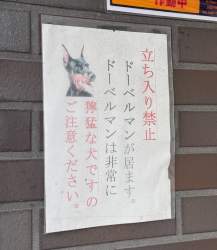 立ち入り禁止
ドーベルマンが居ます。
ドーベルマンは非常に
獰猛な犬ですの
ご注意ください。
作動中